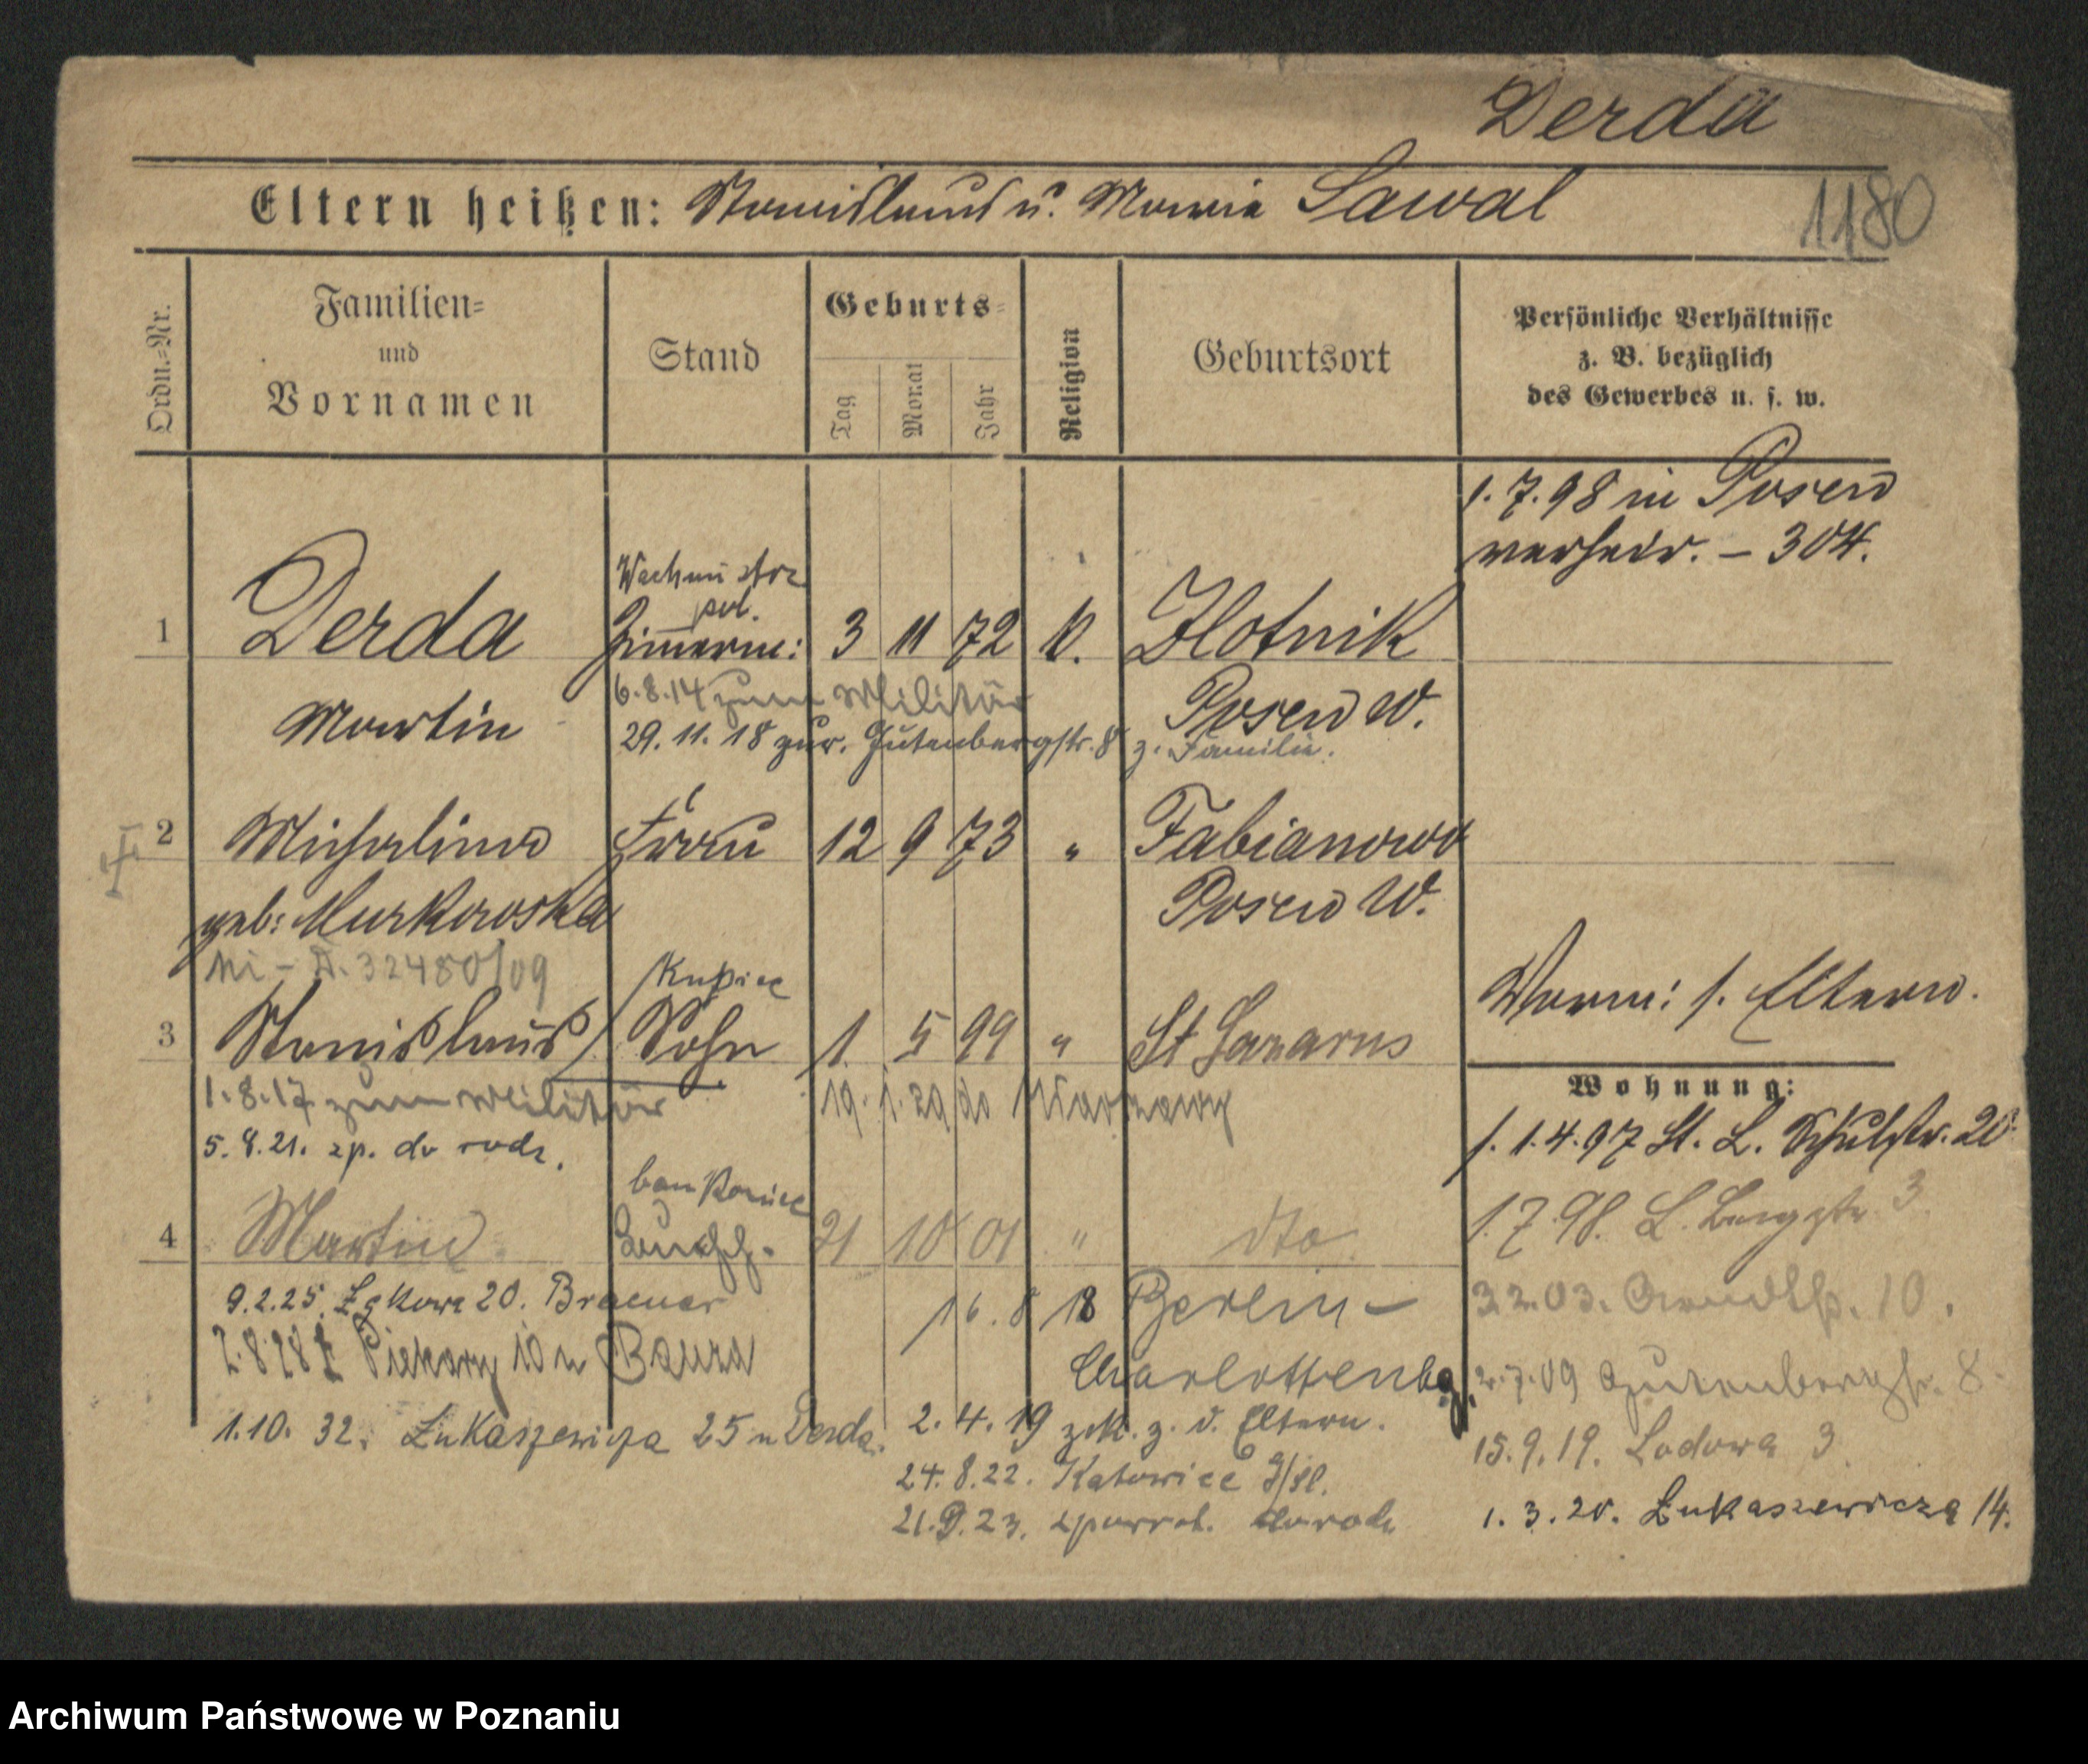 Derda
Eltern heißen: Stanislaus u. Maria Sawal
1180
Ordn.=Nr.
Familien=
und
Vornamen
Stand
Geburts=
Tag
Monat
Jahr
Religion
Geburtsort
Persönliche Verhältnisse
z. B. bezüglich
des Gewerbes u. s. w.
1.7.98 in Posen
verheir. – 304.
Wachmistrz
pol.
1 Derda Zimmerm: 3 11 72 k. Zlotnik
6.8.14 zum Militär
Martin Posen W.
29.11.18 zur. Gutenbergstr. 8 z. Familie.
2 Michalina Frau 12 9 73 " Fabianowo
geb: Murkowska Posen W.
A. 32480/09
Kupiec
Worm: s. Eltern.
3 Stanislaus Sohn 1. 5 99 " St Lazarus
Wohnung:
1.8.17 zum Militär 19.1.29 do Warszawy
5.8.21. zp. do rodz.
s. 1.4.97 St. L. Schulstr. 20.
bankowiec
1.7.98. L. Bergstr 3
4 Martin 21 10 01 " dto
9.2.25. Łąkowa 20. Braeuer
16.8.18 Berlin –
3.2.03. Arndtstr. 10.
7.8.28 Piekary 10 u
Charlottenbg.
2.7.09 Gutenbergstr. 8.
1.10.32. Łukaszewicza 25 u Derda.
2.4.19 zck. z. d. Eltern.
15.9.19. Lodowa 3
24.8.22. Katowice G/Sl.
21.9.23. zpowrot. do rodz
1.3.20. Łukaszewicza 14.
Archiwum Państwowe w Poznaniu